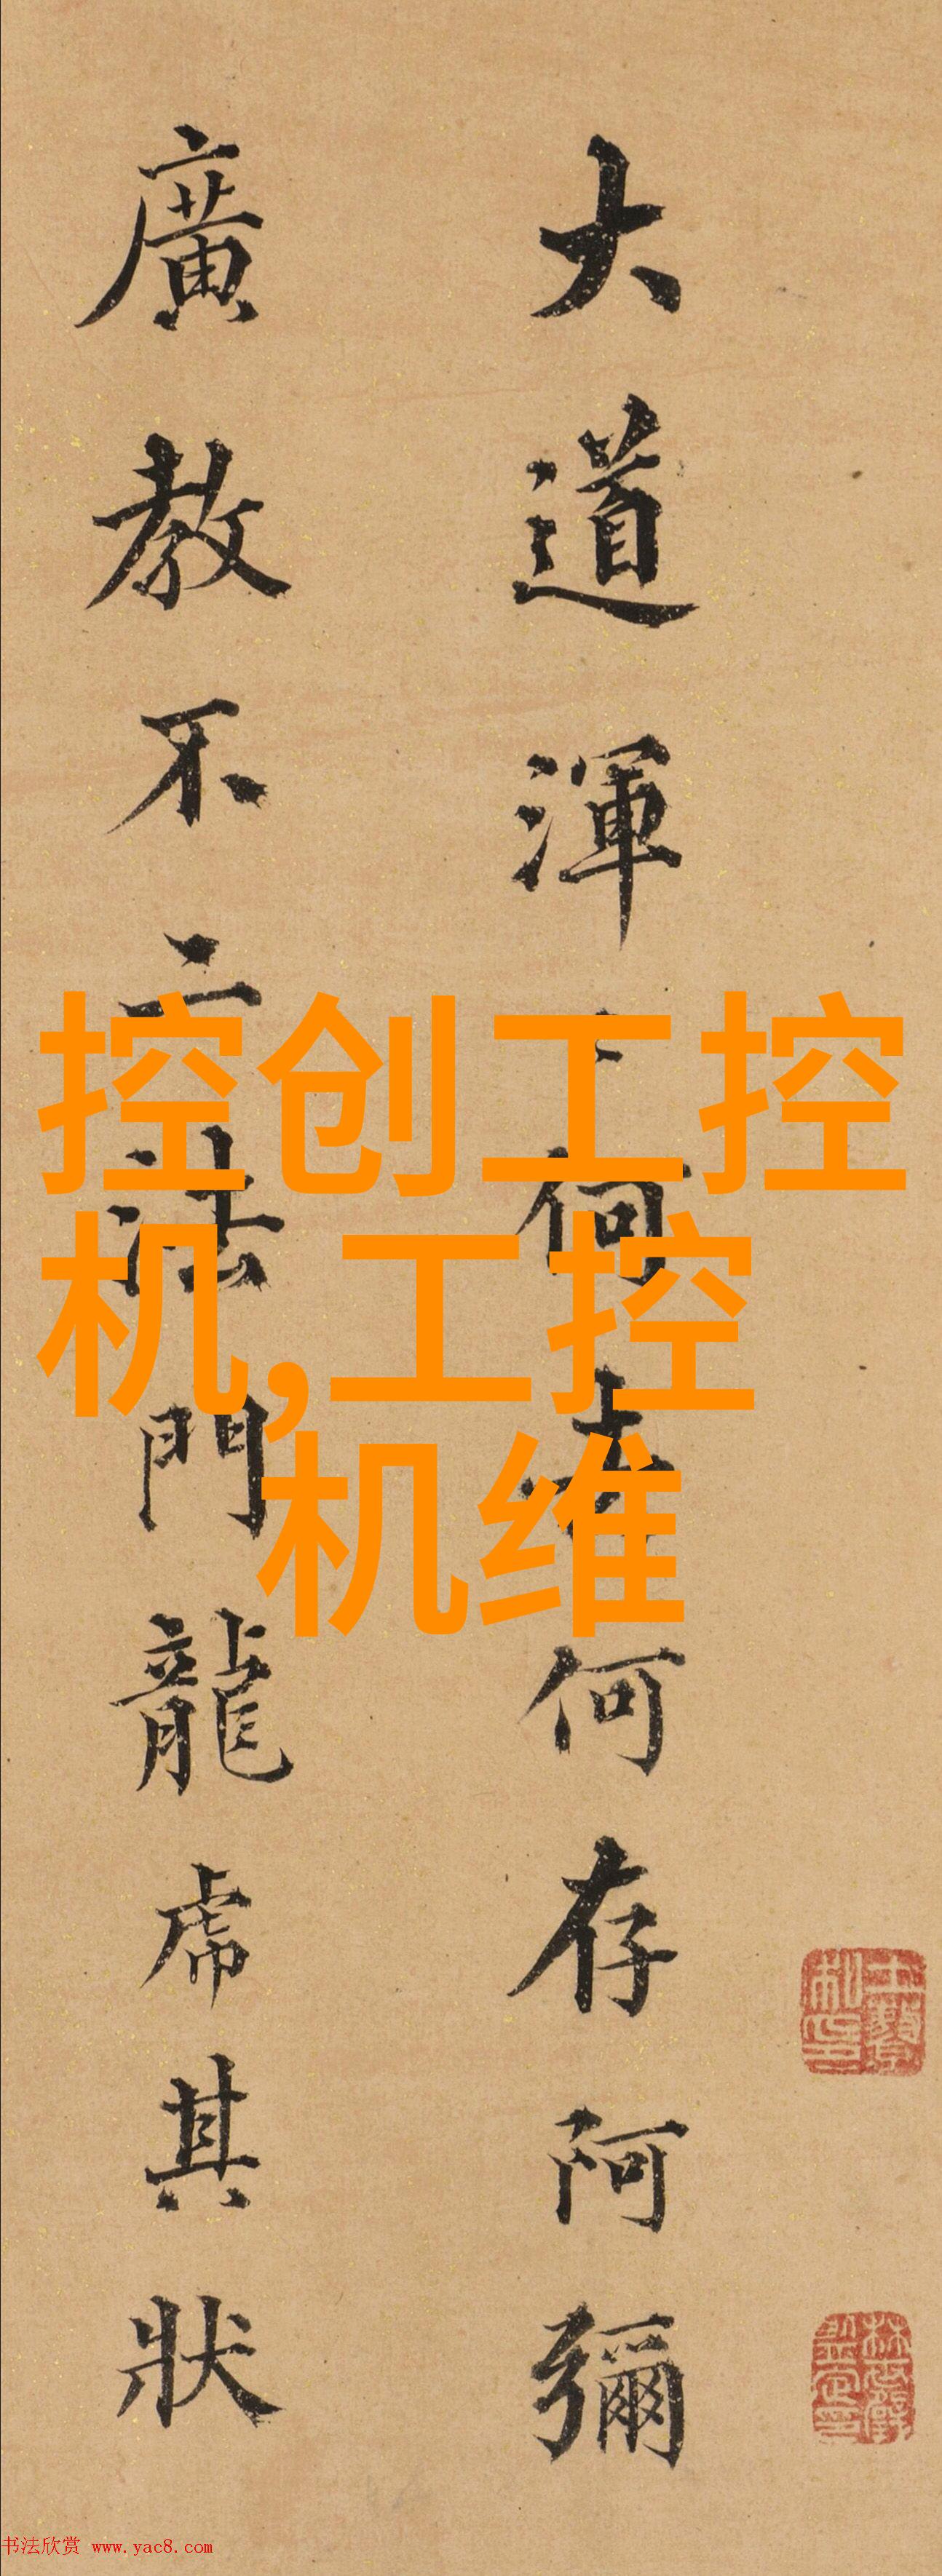 大道渾
何
何存阿彌
廣教不二法門龍虎其狀
控创工控
机,工控
机维
书法欣赏 www.yac8.com